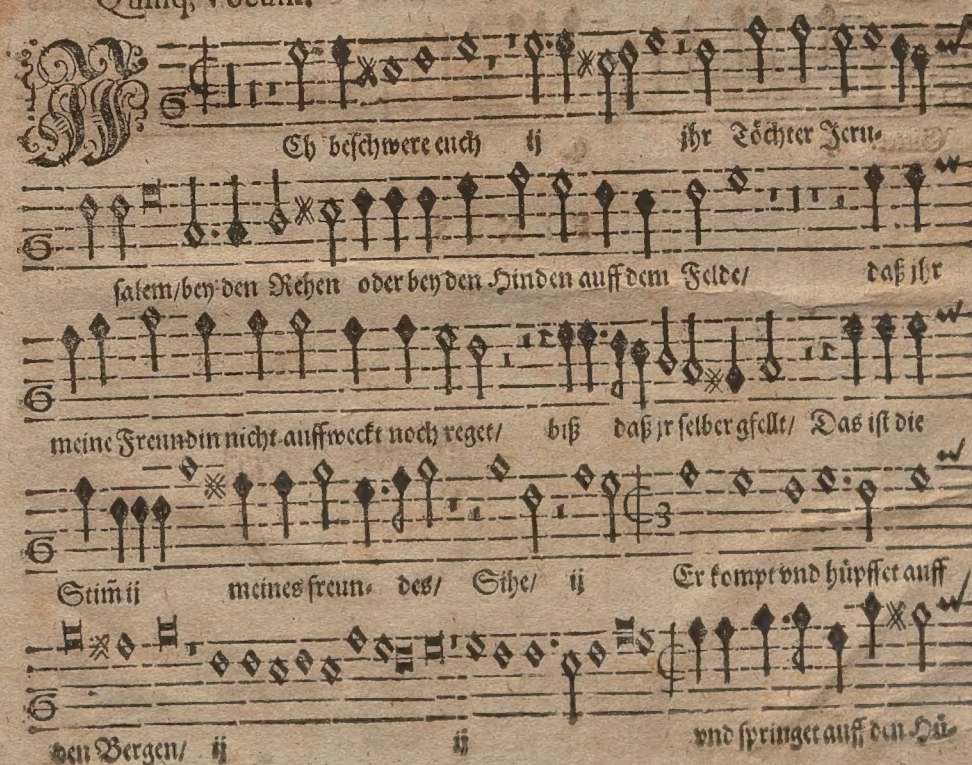 Quinq; Vocum.
ICh beschwere euch ij jhr Töchter Jeru-
salem/bey den Rehen oder bey den Hinden auff dem Felde/ daß jhr
meine Freundin nicht auffweckt noch reget/ biß daß jr selber gfellt/ Das ist die
Stim̄ ij meines freun- des/ Sihe/ ij Er kompt vnd hüpffet auff
den Bergen/ ij ij vnd springet auff den Hü-